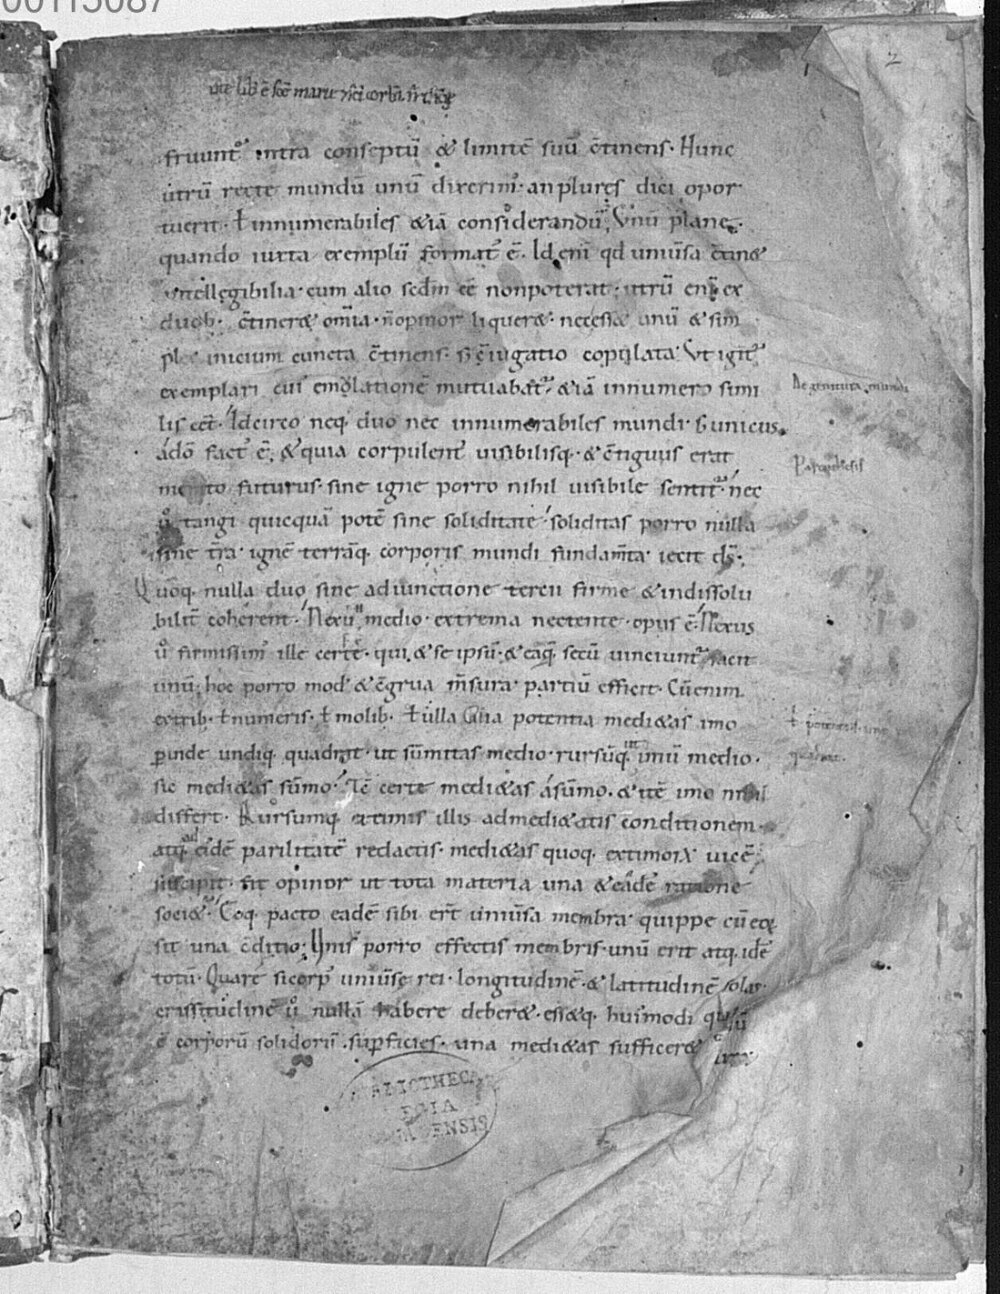 00115087
2
iste lib ē scē marie
fruunt᷒ intra conseptū & limitē suū c̄tinens· Hunc
utrū recte mundū unū dixerim᷒· an plures dici opor
tuerit· ł innumerabiles &iā considerandū; Unū plane,
quando iuxta exemplū format᷒ ē· Id eni qd uniūsa c̄tin&
intellegibilia· cum alio scdm ēē non poterat· utrū eni ex
duob· c̄tiner& om̄ia· n̄ opinor liquer&· necesse unū & sim
plex inicium cuncta c̄tinens· s; c̄iugatio copulata· Ut igit᷒
exemplari cui emolationē mutuabat᷒· &iā innumero simi
lis eet· Idcirco neq· duo nec innumerabiles mundi· s; unicus
De genitura mundi
ádō fact᷒ ē; &quia corpulent᷒ uisibilisq· & c̄tiguus erat
merito futurus· sine igne porro nihil uisibile sentit᷒· nec
u̇ tangi quicquā potē sine soliditate· soliditas porro nulla
sine t̄ra· ignē terrāq· corporis mundi fundam̄ta iecit ds̄·
Quōq· nulla duo sine adiunctione tercii firme & indissolu
bilit̄ coherent· Nexu, medio· extrema nectente· opus ē· Nexus
u̇ firmissim᷒ ille certe· qui & se ipsū· & eaq· secū uinciunt᷒ facit
unū; hoc porro mod᷒ & c̄grua m̄sura· partiū efficit· Cū enim
ex trib· ł numeris· ł molib· ł ulla alia potentia medi&as imo
perinde undiq· quadrat· ut sūmitas medio· rursūq· imū medio·
sic medi&as sūmo· Tē certe medi&as ásūmo· & itē imo nihil
differt· Rursumq· extimis illis admedi&atis conditionem·
atq· ad eidē parilitatē redactis· medi&as quoq· extimorꝝ uicē
suscipit· fit opinor ut tota materia una & eādē ratione
soci&᷒· Eoq· pacto eadē sibi er̄t uniūsa membra· quippe cū eoꝝ
sit una c̄ditio; Unis porro effectis membris· unū erit atq· idē
totū· Quare si corp᷒ uniūse rei· longitudinē· & latitudinē solas·
crassitudinē u̇ nullā habere deber&· ess&q· hui᷒modi
ē corporū solidorū· superficies· una medi&as sufficer&
BIBLIOTHECA
REGIA
MONACENSIS